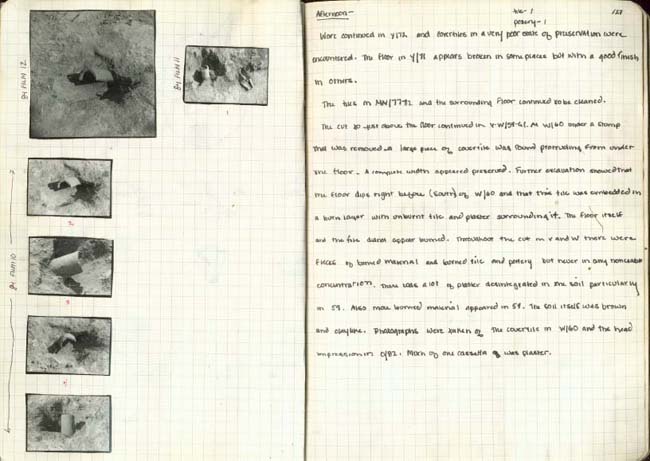 84 FILM 12
84 FILM 11
1
7
84 FILM 10
Afternoon-
tile-1
pottery-1
127
Work continued in Y/72 and covertiles in a very poor state of preservation were
encountered. The floor in Y/71 appears broken in some places but with a good finish
in others.
The tiles in MN/77-82 and the surrounding floor continued to be cleaned.
The cut to just above the floor continued in V-W/59-61. At W/60 under a stump
that was removed a large piece of covertile was found protruding from under
the floor. A complete width appeared preserved. Further excavation showed that
the floor dips right before (south) of W/60 and that this tile was embedded in
a burn layer with unburnt tile and plaster surrounding it. The floor itself
and the tile did not appear burned. Throughout the cut in V and W there were
pieces of burned material and burned tile and pottery but never in any noticeable
concentration. There was a lot of plaster desintegrated in the soil particularly
in 59. Also more burned material appeared in 59. The soil itself was brown
and claylike. Photographs were taken of the covertile in W/60 and the head
impression in O/82. Much of one cassetta of was plaster.